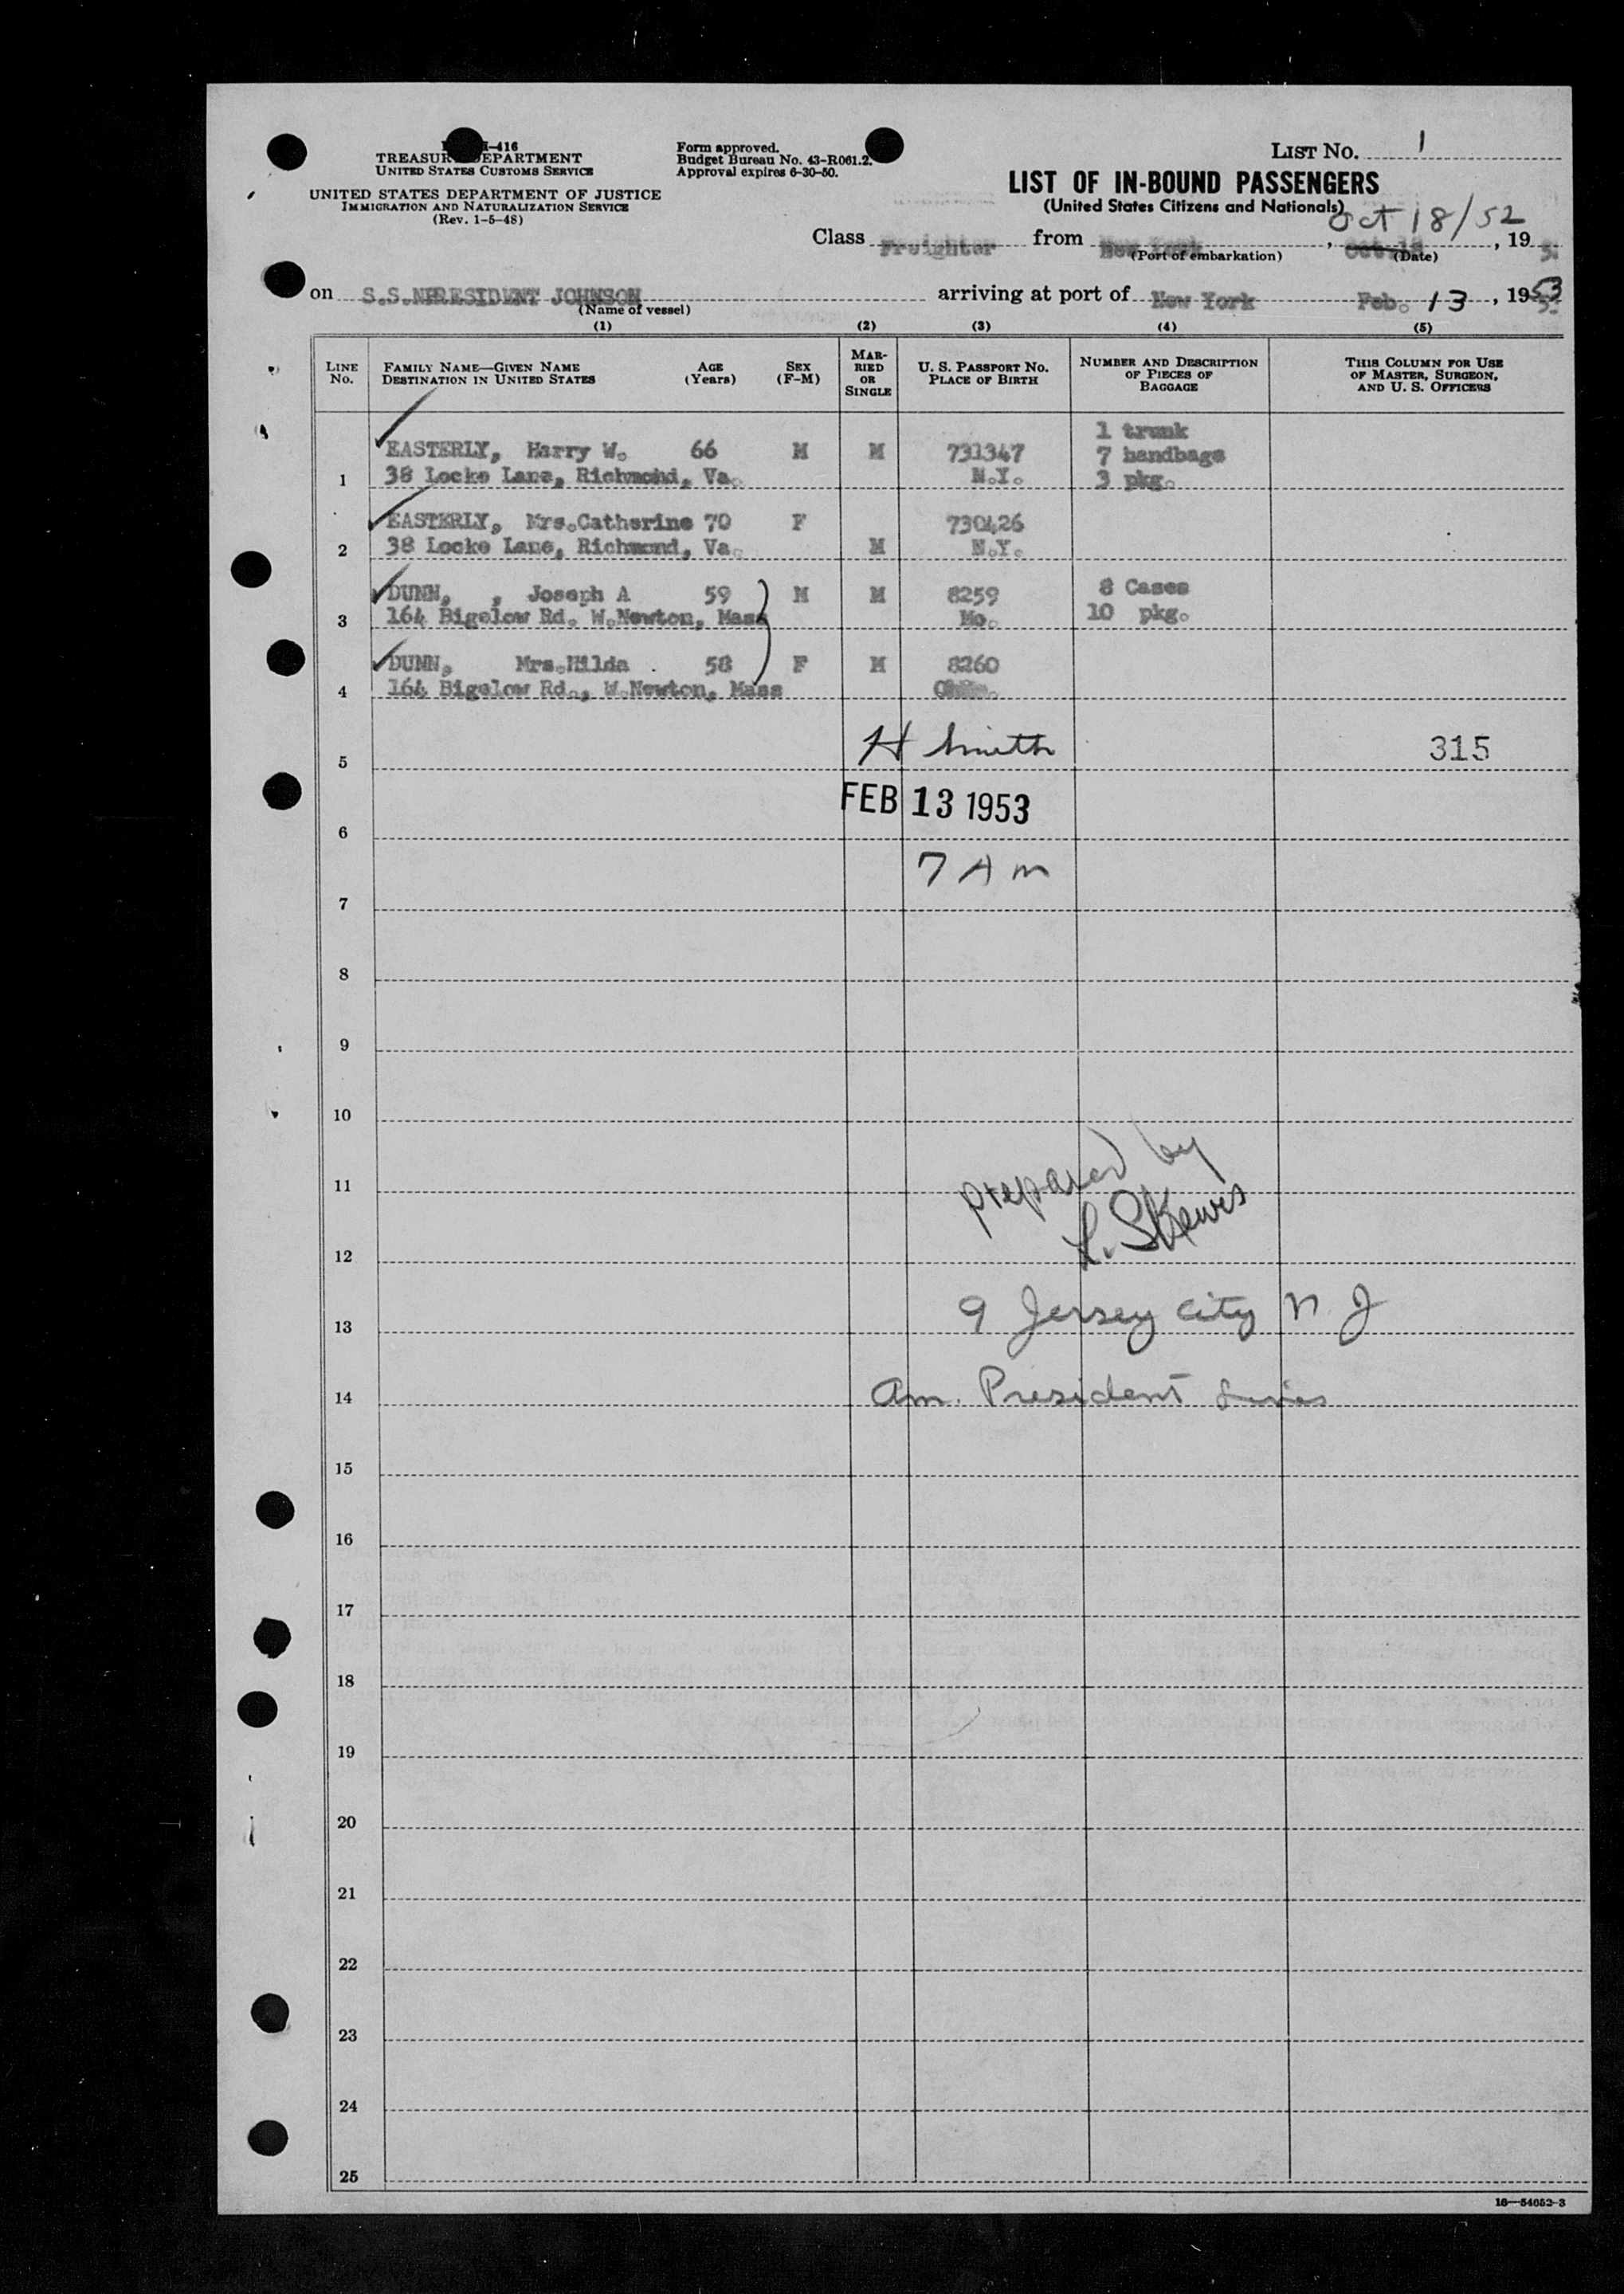 I-416
TREASURY DEPARTMENT
UNITED STATES CUSTOMS SERVICE
UNITED STATES DEPARTMENT OF JUSTICE
IMMIGRATION AND NATURALIZATION SERVICE
(Rev. 1-5-48)
Form approved.
Budget Bureau No. 43-R061.2.
Approval expires 6-30-50.
LIST NO. 1
LIST OF IN-BOUND PASSENGERS
(United States Citizens and Nationals)
Oct 18/52
Class Freighter from New York, Oct. 18, 195
(Port of embarkation) (Date)
on S.S. PRESIDENT JOHNSON arriving at port of New York Feb. 13, 1953
(Name of vessel)
(1) (2) (3) (4) (5)
LINE NO. FAMILY NAME—GIVEN NAME DESTINATION IN UNITED STATES AGE (Years) SEX (F-M) MARRIED OR SINGLE U. S. PASSPORT NO. PLACE OF BIRTH NUMBER AND DESCRIPTION OF PIECES OF BAGGAGE THIS COLUMN FOR USE OF MASTER, SURGEON, AND U. S. OFFICERS
1 trunk
EASTERLY, Harry W. 66 M M 731347 7 handbags
1 38 Locke Lane, Richmond, Va. N.Y. 3 pkg.
EASTERLY, Mrs.Catherine 70 F 730426
2 38 Locke Lane, Richmond, Va. M N.Y.
DUNN, , Joseph A 59 M M 8259 8 Cases
3 164 Bigelow Rd. W.Newton, Mass Mo. 10 pkg.
DUNN, Mrs.Hilda 58 F M 8260
4 164 Bigelow Rd., W.Newton, Mass
H Smith 315
5
FEB 13 1953
6
7 AM
7
8
9
10
prepared by
11
L. Skewis
12
9 Jersey City N. J
13
Am. President Lines
14
15
16
17
18
19
20
21
22
23
24
25
16—54052-3